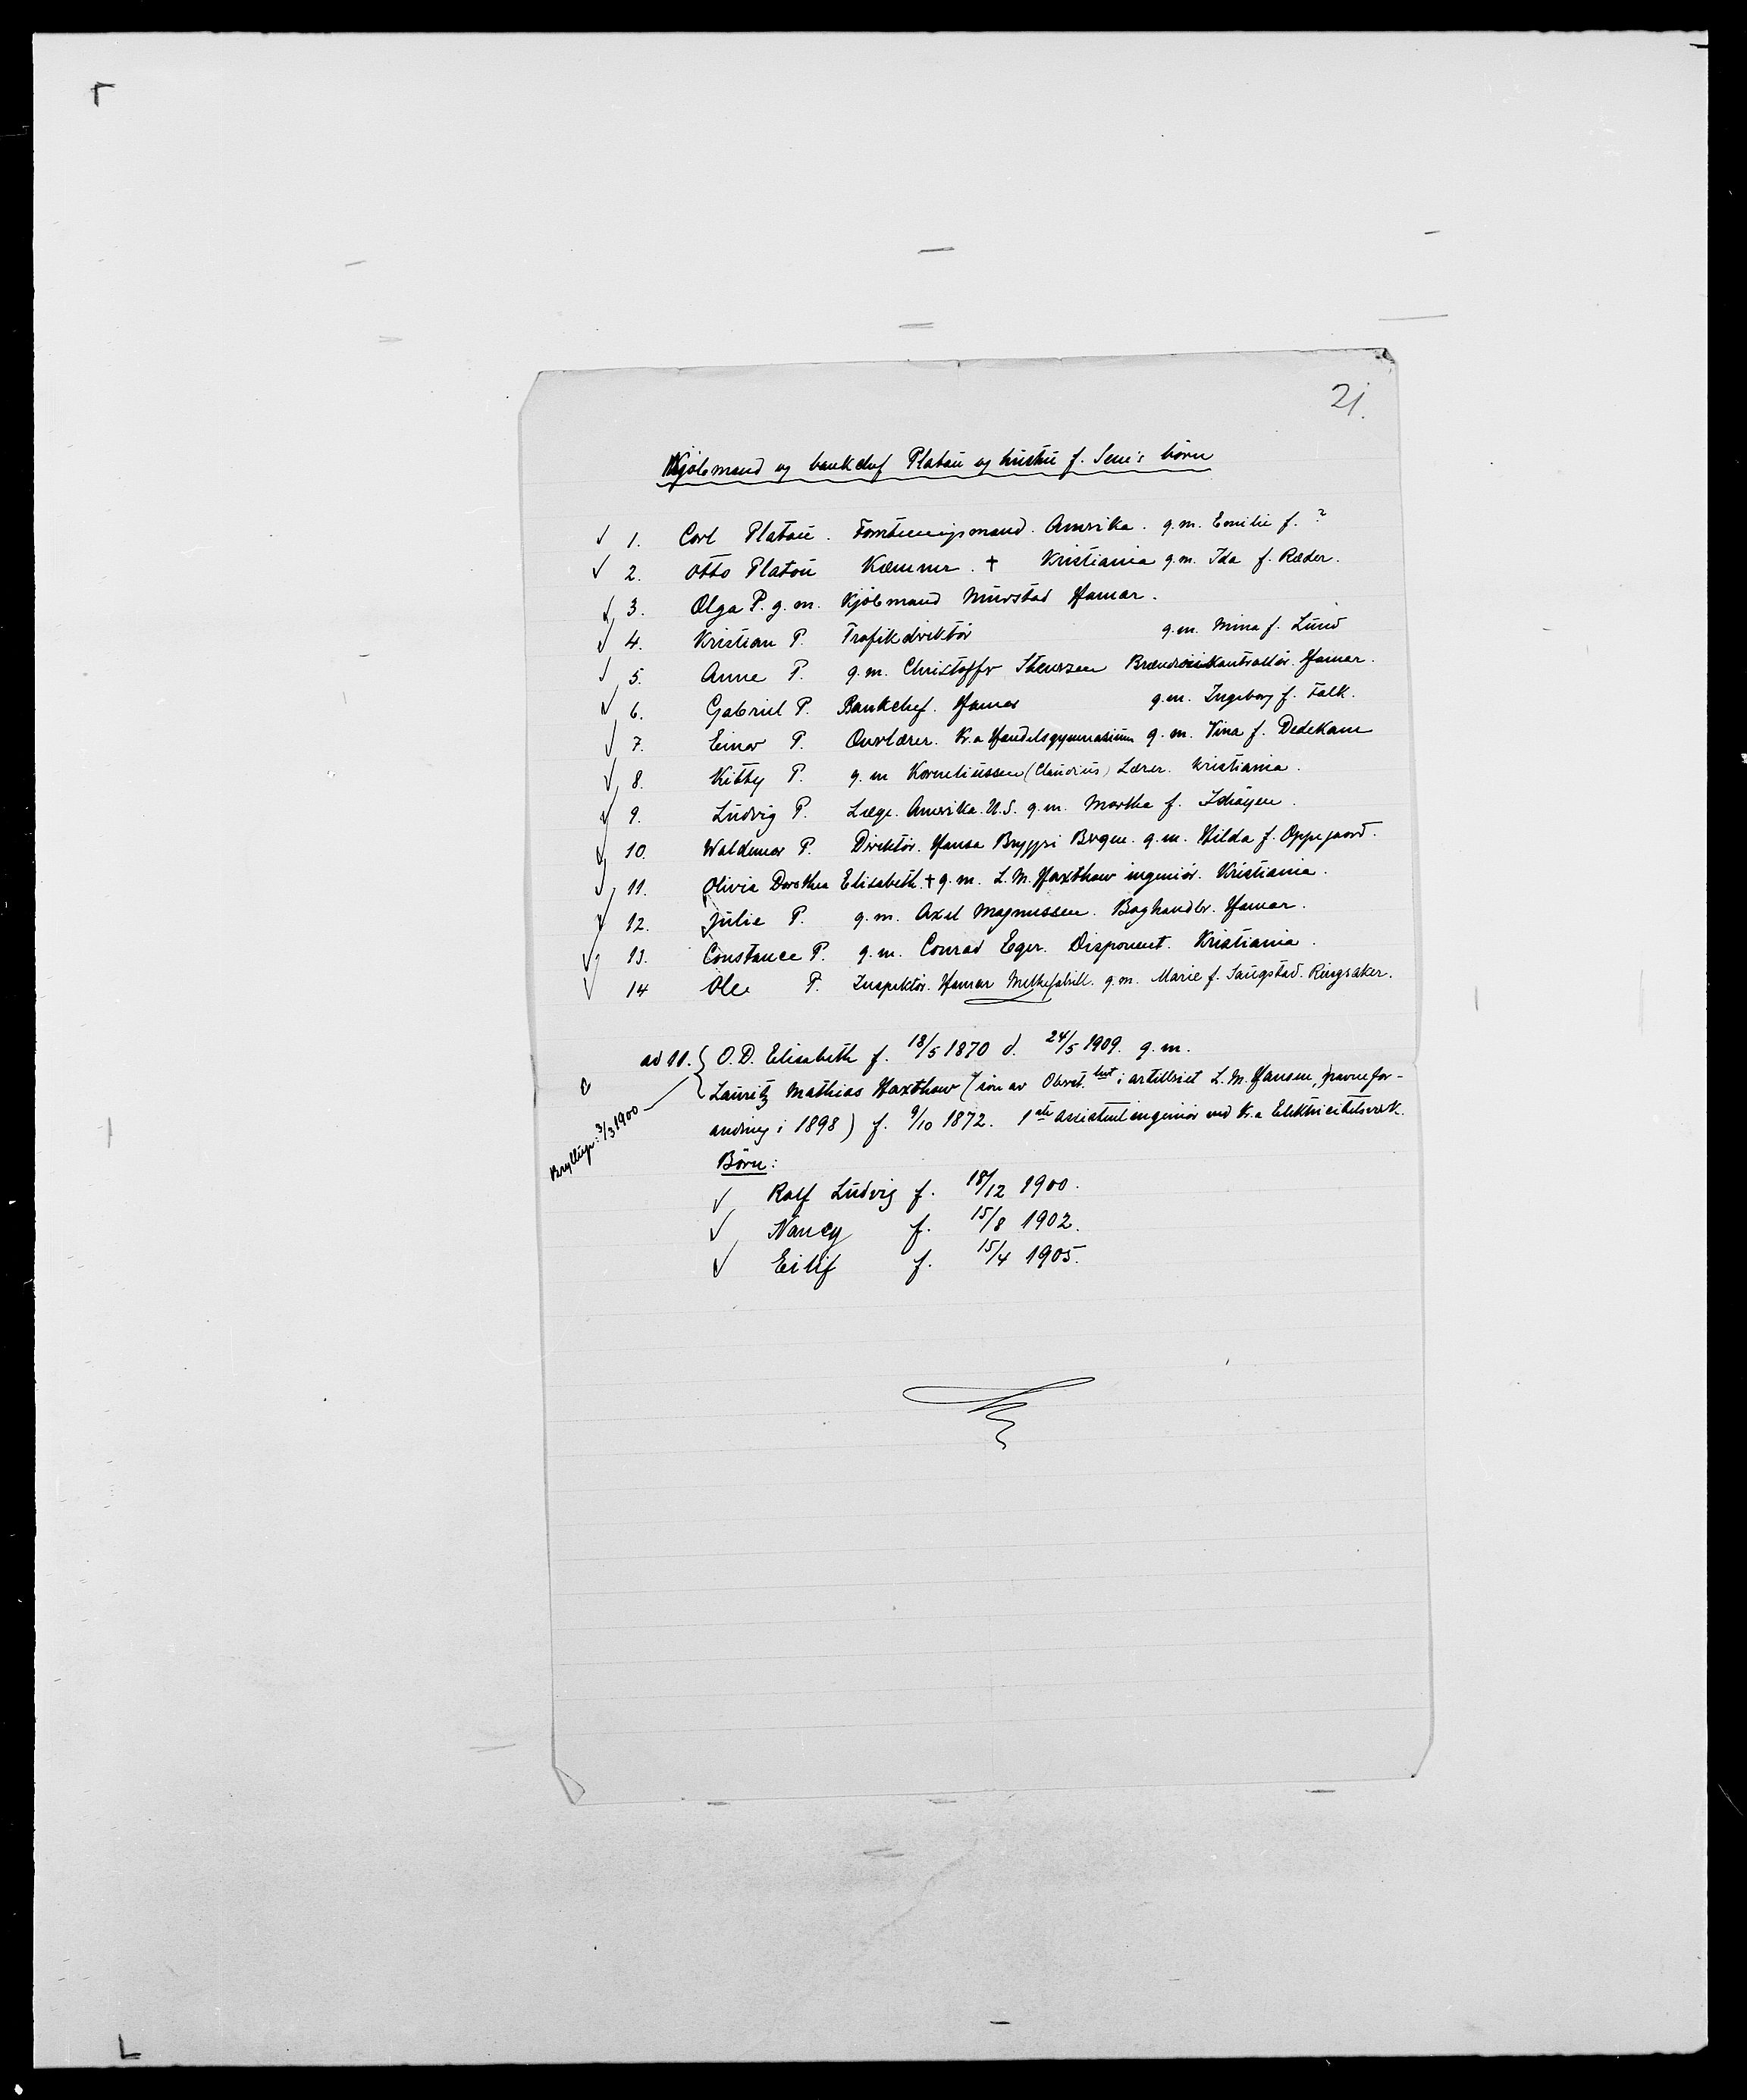 21.
Kjøbmand og bankchef Platou og hustru f. Sem's børn
✓ 1. Carl Platou. Forretningsmand. Amerika. g.m. Emilie f. ?
✓ 2. Otto Platou Kæmner. † Kristiania g.m. Ida f. Ræder.
✓ 3. Olga P. g.m. Kjøbmand Mürstad Hamar.
✓ 4. Kristian P. Trafikdirektör g.m. Mina f. Lund
✓ 5. Anne P. g.m. Christoffer Stenersen Hamar.
✓ 6. Gabriel P. Bankchef. Hamar g.m. Ingeborg f. Falk.
✓ 7. Einar P. Overlærer. Kr.a Handelsgymnasium g.m. Vina f. Dedekam
✓ 8. Kitty P. g.m Korneliussen (Claudius) Lærer. Kristiania.
✓ 9. Ludvig P. Læge. Amerika. U.S. g.m. Martha f.
✓ 10. Waldemar P. Direktör. Hansa Bryggeri Bergen. g.m. Hilda f. Oppegaard.
✓ 11. Olivia Dorothea Elisabeth. † g.m. L.M. Haxthow ingeniör. Kristiania.
✓ 12. Julie P. g.m. Axel Magnussen. Boghandler. Hamar.
✓ 13. Constance P. g.m. Conrad Eger. Disponent. Kristiania.
✓ 14 Ole P. Inspektör. Hamar Melkefabrik. g.m. Marie f. Saugstad. Ringsaker.
ad 11. { O.D. Elisabeth f. 18/5 1870 d. 24/5 1909. g.m.
Lauritz Mathias Haxthow (søn av Oberst.lnt i artilleriet L.M. Hansen, navnefor-
andring i 1898) f. 9/10 1872. 1ste assistentingeniör ved Kr.a Elektricitetsverk.
Bryllup: 3/3 1900
Børn:
✓ Rolf Ludvig f. 18/12 1900.
✓ Nancy f. 15/8 1902.
✓ Eilif f. 15/4 1905.